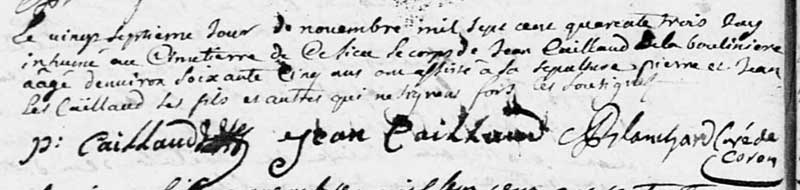 Le vingt septieme Jour de novembre mil sept cent quarente trois Jay
inhumé au Cimetierre de ce lieu le corps de Jean Caillaud de la bouliniere
aâgé denviron soixante Cinq ans ont assisté à sa sepulture pierre et Jean
les Caillaud ses fils et autres qui ne signent fors les soussignés
p: Caillaud Jean Caillaud Blanchard Curé de
Coron